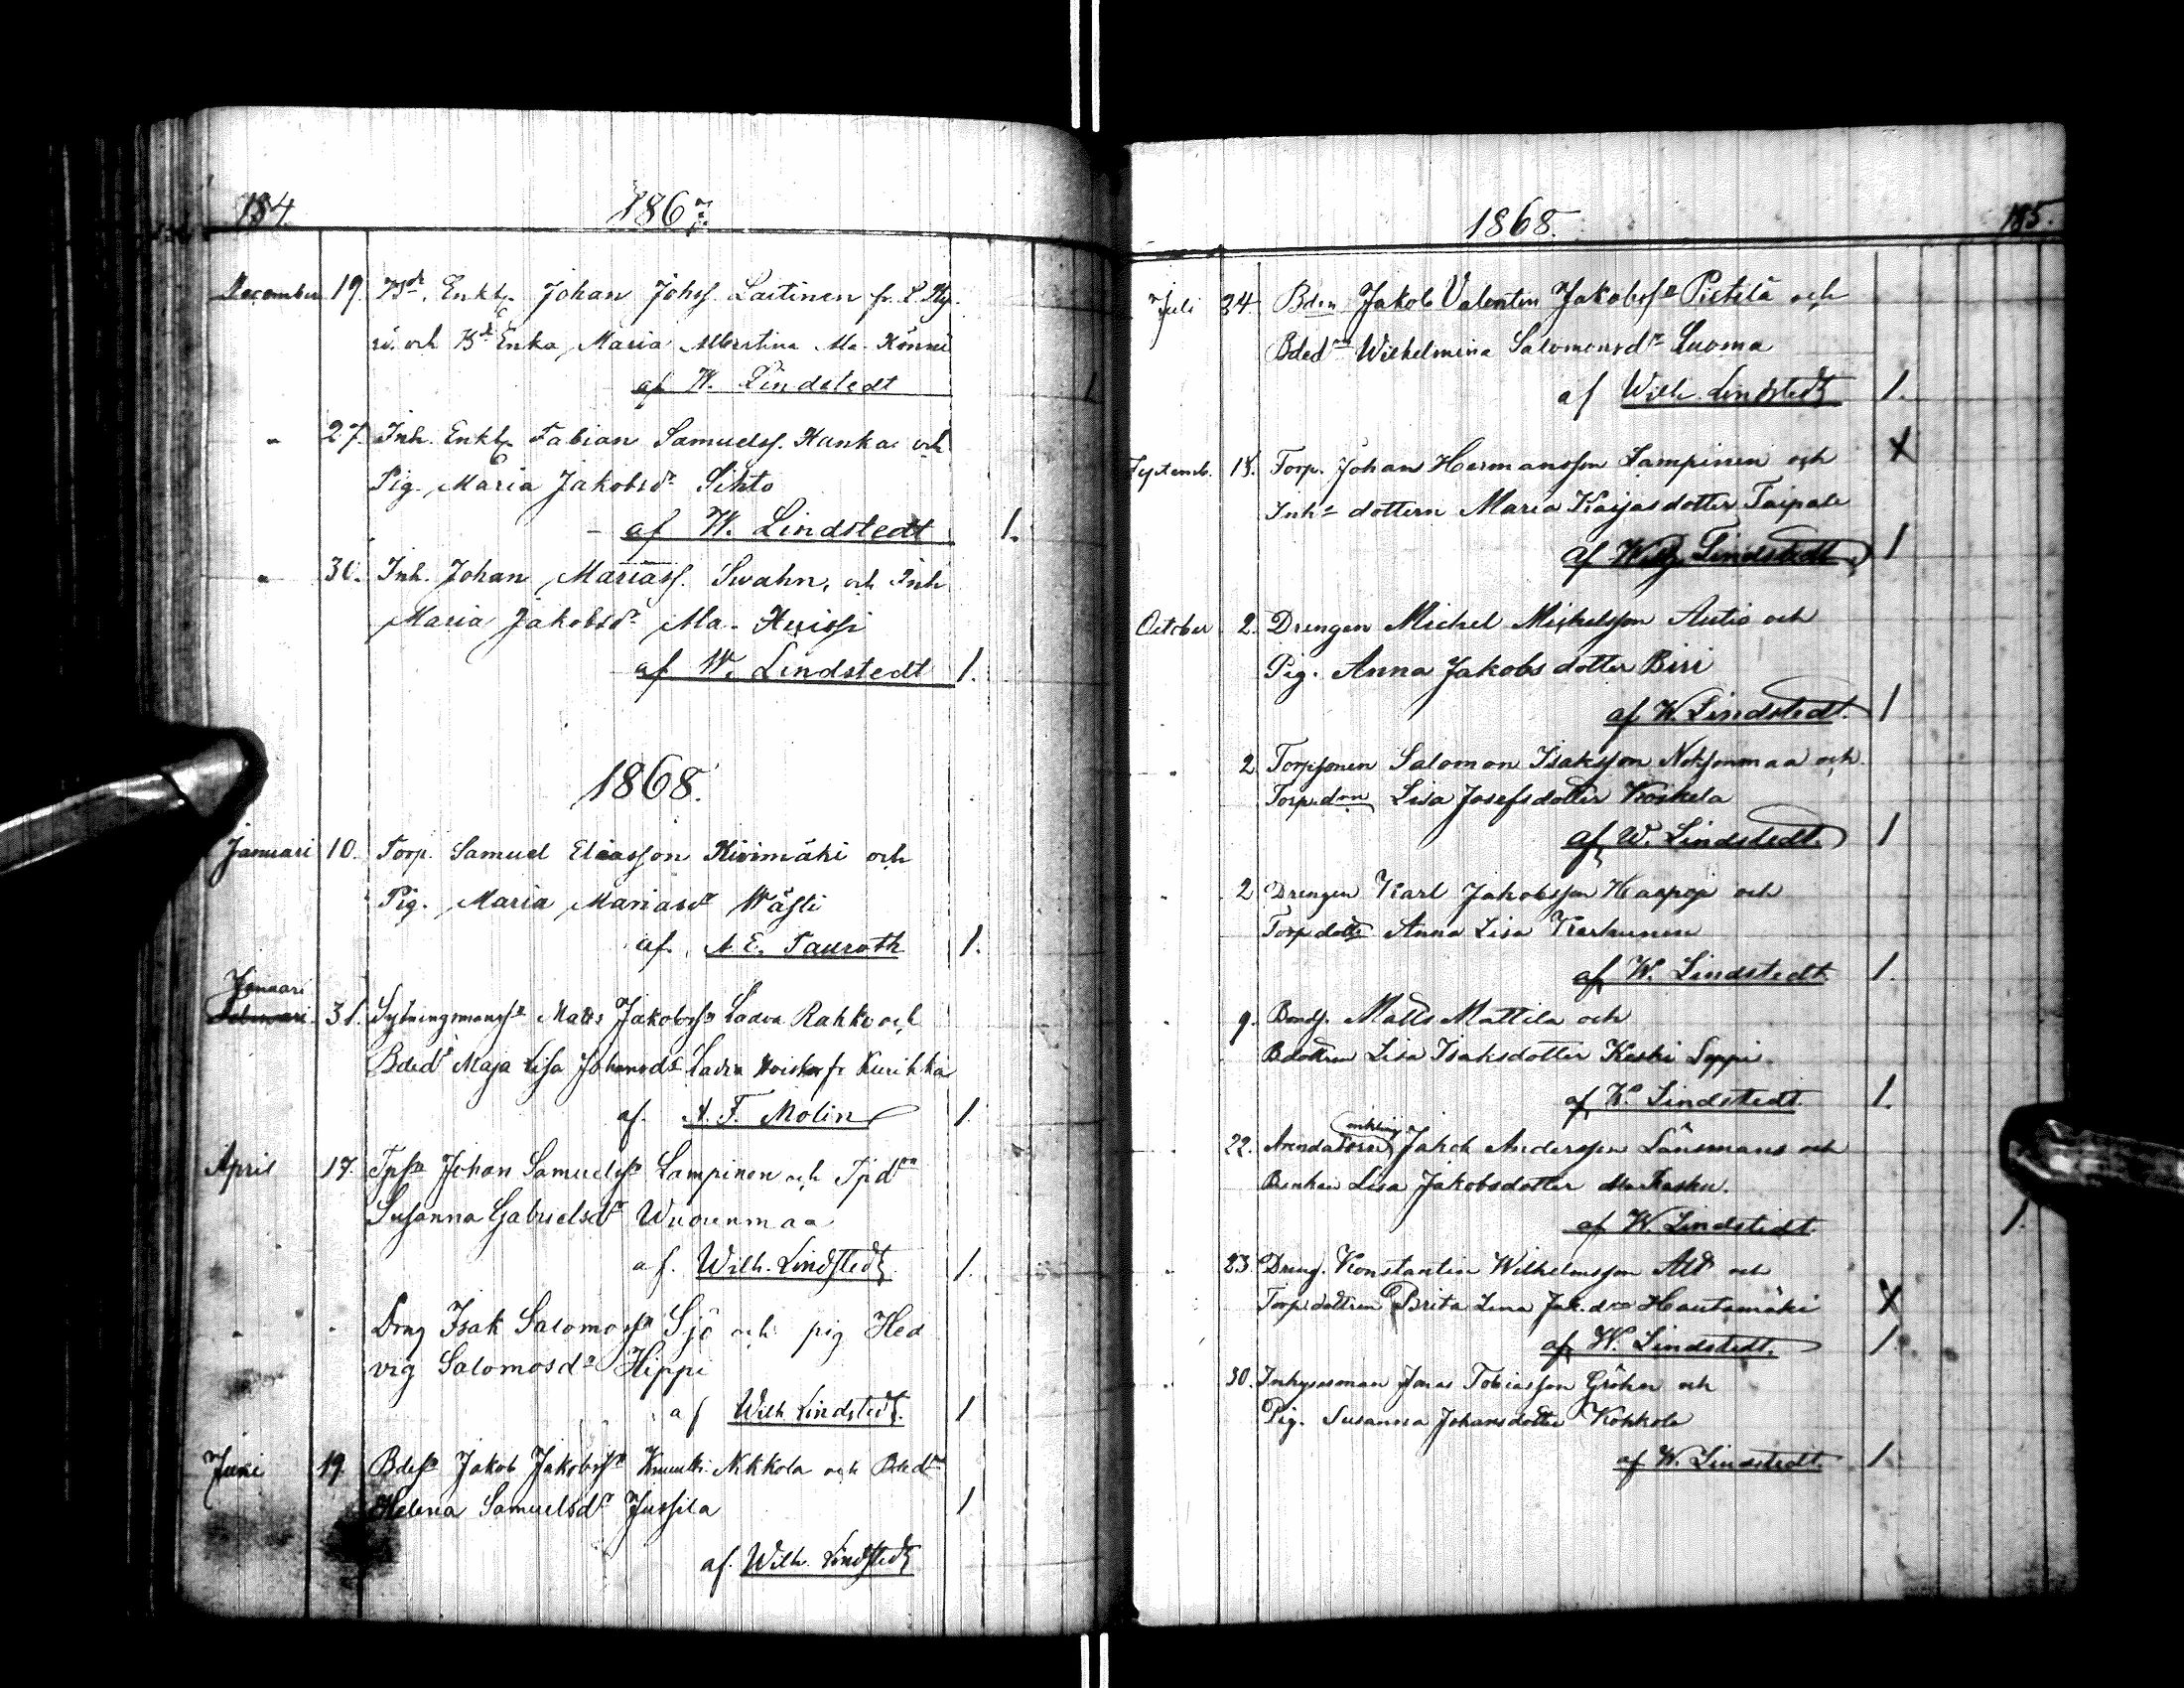 184.
1867.
December 19. Bd. Enkl. Johan Johss. Laitinen fr. L. Ky-
rö. och Bd. Enka Maria Albertina Ma. Könni
af W. Lindstedt 1
" 27. Inh. Enkl. Fabian Samuelss. Hanka och
Pig. Maria Jakobsdr. Sihto
af W. Lindstedt 1.
" 30. Inh. Johan Mariass. Swahn, och Inh
Maria Jakobsdr. Ma. Huissi
af W. Lindstedt 1.
1868.
Januari 10. Torp. Samuel Eliasson Kivimäki och
Pig. Maria Mariasdr Wästi
af. A. E. Tauroth 1.
Januari
Februari 31. Sytningmanssn Matts Jakobssn Ladva Rakko och
Bdedr Maja Lisa Johansdr Ladva fr Kurikka
af. A. F. Molin 1.
April 17. Tpsn Johan Samuelssn Lampinen och Tpdrn
Susanna Gabrielsdr Wuorenmaa
af. Wilh. Lindstedt 1.
" " Dräng Isak Salomonssn Sjö och pig Hed
vig Salomosdr Hippi
af Wilh. Lindstedt. 1
Juni 19. Bdesn Jakob Jakobssn Knuutti Nikkola och Bdedrn
Helena Samuelsdr Jussila 1
af. Wilh. Lindstedt
1868.
185.
Juli 24. Bden Jakob Valentin Jakobssn Pietilä och
Bdedrn Wilhelmina Salomonsdr Luoma
af Wilh. Lindstedt 1.
Septemb. 18. Torp. Johan Hermansson Lampinen och X
Inhs dottern Maria Kaijasdotter Taipale
af W. Lindstedt 1
October 2. Drengen Michel Mickelsson Autio och
Pig. Anna Jakobsdotter Biri
af W. Lindstedt. 1
" 2 Torpsonen Salomon Isaksson Noksonmaa och
Torpdrn Lisa Josefsdotter Koskela
af W. Lindstedt. 1
" 2 Drengen Karl Jakobsson Haapoja och
Torpdottr Anna Lisa Karhunen
af W. Lindstedt. 1.
" 9. Bonds. Matts Mattila och
Bdottren Lisa Isaksdotter Keski Seppi.
af W. Lindstedt 1.
enkling
" 22. Arendatorn Jakob Andersson Länsmans och
Benkan Lisa Jakobsdotter Ma Kasku.
af W. Lindstedt 1.
" 23. Dreng. Konstantin Wilhelmsson Ald och
Torpdottren Brita Lena Jak.drn Hautamäki X
af W. Lindstedt. 1
" 30. Inhysesman Jonas Tobiasson Gröhn och
Pig. Susanna Johansdotter Kokkola
af W. Lindstedt. 1